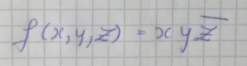 f(x,y,z) = xyz̅